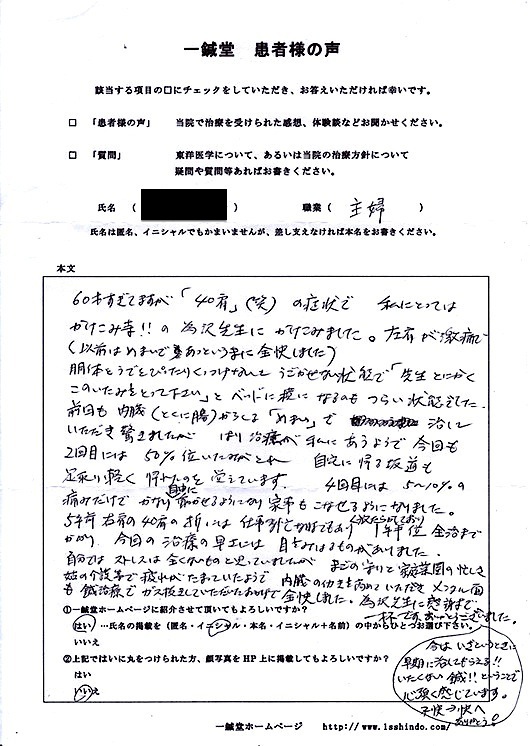 一鍼堂 患者様の声
該当する項目の□にチェックをしていただき、お答えいただければ幸いです。
□ 「患者様の声」 当院で治療を受けられた感想、体験談などお聞かせください。
□ 「質問」 東洋医学について、あるいは当院の治療方針について
疑問や質問等あればお書きください。
氏名 ( ) 職業 ( 主婦 )
氏名は匿名、イニシャルでもかまいませんが、差し支えなければ本名をお書きください。
本文
60才すぎてますが「40肩」(笑) の症状で 私にとっては
かけこみ寺!! の為沢先生に かけこみました。左肩が激痛で
(以前はめまいで あっというまに全快しました)
胴体とうでをぴたりくっつけなんて うごかせない状態で「先生とにかく
このいたみをとって下さい」と ベッドに横になるのもつらい状態でした。
前回も内臓(とくに腸)からくる「めまい」で 治して
いただき驚きましたが はり治療が私にあうようで今回も
2回目には50%位いたみがとれ 自宅に帰る坂道も
足取り軽く 帰れたのを覚えています。 4回目には5〜10%の
痛みだけで かなり自由に動かせるようになり家事もこなせるようになりました。
5年前右肩の40肩の折には 1年半位 全治まで
かかり、今回の治療の早さには目をみはるものがありました。
自分ではストレスは全くないものと思っていましたが 孫の守りと家庭菜園の忙しさ
姑の介護等で疲れがたまっていたようで 内臓の働きを高めていただき メンタル面
も鍼治療でガス抜きしていただいたおかげで全快しました。為沢先生に感謝で
一杯です。ありがとうございました。
①一鍼堂ホームページに紹介させて頂いてもよろしいですか?
はい …氏名の掲載を(匿名・イニシャル・本名・イニシャル+名前)の中からひとつお選び下さい。
いいえ
②上記ではいに丸をつけられた方、顔写真をHP上に掲載してもよろしいですか?
はい
いいえ
今は いざというときに
早期に治してもらえる!!
いたくない鍼!! ということで
心強く感じています。
ありがとう!
一鍼堂ホームページ http://www.isshindo.com/